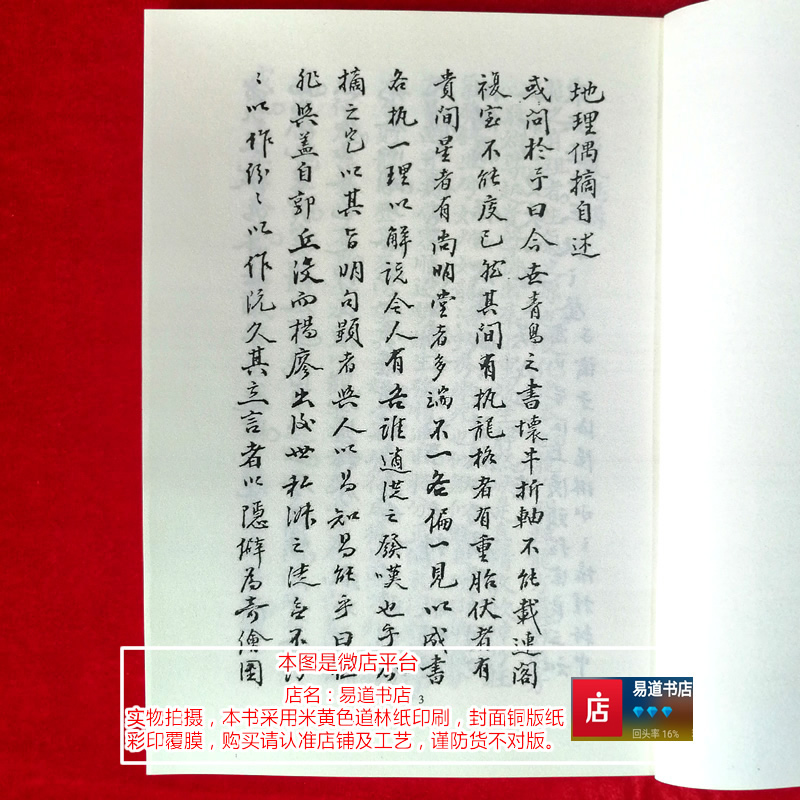 地理偶摘自述
或问於予曰今世青鳥之書壞牛折軸不能載連閣
複室不能度已然其间有执龍格者有重胎伏者有
貴间星者有尚明堂者多端不一各偏一見以成書
各执一理以解説令人有吾谁適從之發嘆也子
摘之它以其旨明句顕者與人以易知易能乎曰
與盖自郭丘没而楊廖出後世私淑之徒
以作 以作 久其立言者以隱僻為奇繪圖
3
本图是微店平台
店名：易道书店
实物拍摄，本书采用米黄色道林纸印刷，封面铜版纸
彩印覆膜，购买请认准店铺及工艺，谨防货不对版。
店
易道书店
回头率 16%